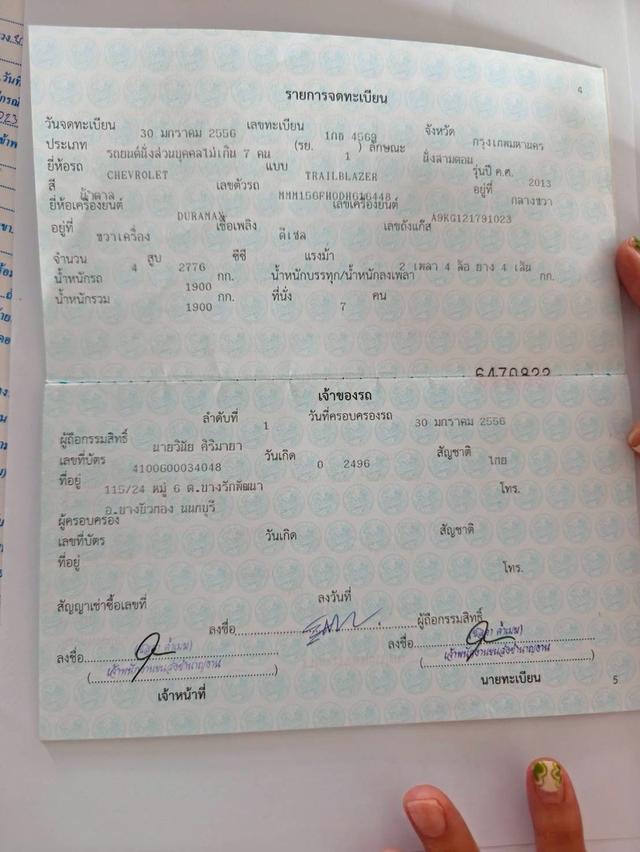 4
รายการจดทะเบียน
วันจดทะเบียน 30 มกราคม 2556 เลขทะเบียน 1กธ 4569 จังหวัด กรุงเทพมหานคร
ประเภท รถยนต์นั่งส่วนบุคคลไม่เกิน 7 คน (รย. 1 ) ลักษณะ นั่งสามตอน
ยี่ห้อรถ CHEVROLET แบบ TRAILBLAZER รุ่นปี ค.ศ. 2013
สี น้ำตาล เลขตัวรถ MMM156FH0DH616448 อยู่ที่ กลางขวา
ยี่ห้อเครื่องยนต์ DURAMAX เลขเครื่องยนต์ A9KG121791023
อยู่ที่ ขวาเครื่อง เชื้อเพลิง ดีเซล เลขถังแก๊ส
จำนวน 4 สูบ 2776 ซีซี แรงม้า 2 เพลา 4 ล้อ ยาง 4 เส้น
น้ำหนักรถ 1900 กก. น้ำหนักบรรทุก/น้ำหนักลงเพลา กก.
น้ำหนักรวม 1900 กก. ที่นั่ง 7 คน
6470822
เจ้าของรถ
ลำดับที่ 1 วันที่ครอบครองรถ 30 มกราคม 2556
ผู้ถือกรรมสิทธิ์ นายวินัย ศิริมายา
เลขที่บัตร 4100600034048 วันเกิด 0 2496 สัญชาติ ไทย
ที่อยู่ 115/24 หมู่ 6 ต.บางรักพัฒนา โทร.
อ.บางบัวทอง นนทบุรี
ผู้ครอบครอง
เลขที่บัตร วันเกิด สัญชาติ
ที่อยู่ โทร.
สัญญาเช่าซื้อเลขที่ ลงวันที่
ลงชื่อ ผู้ถือกรรมสิทธิ์
ลงชื่อ ลงชื่อ
เจ้าพนักงานขนส่งชำนาญงาน เจ้าพนักงานขนส่งชำนาญงาน
เจ้าหน้าที่ นายทะเบียน
5